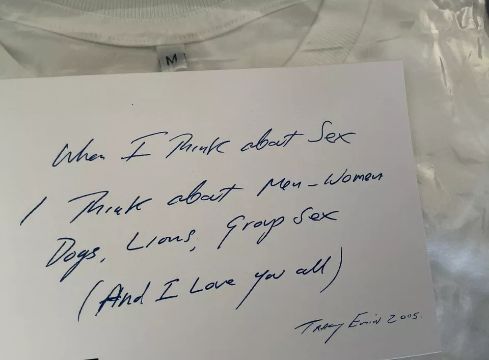 M
When I Think about Sex
I Think about Men-Women
Dogs, Lions, Group Sex
(And I Love you all)
Tracey Emin 2005.